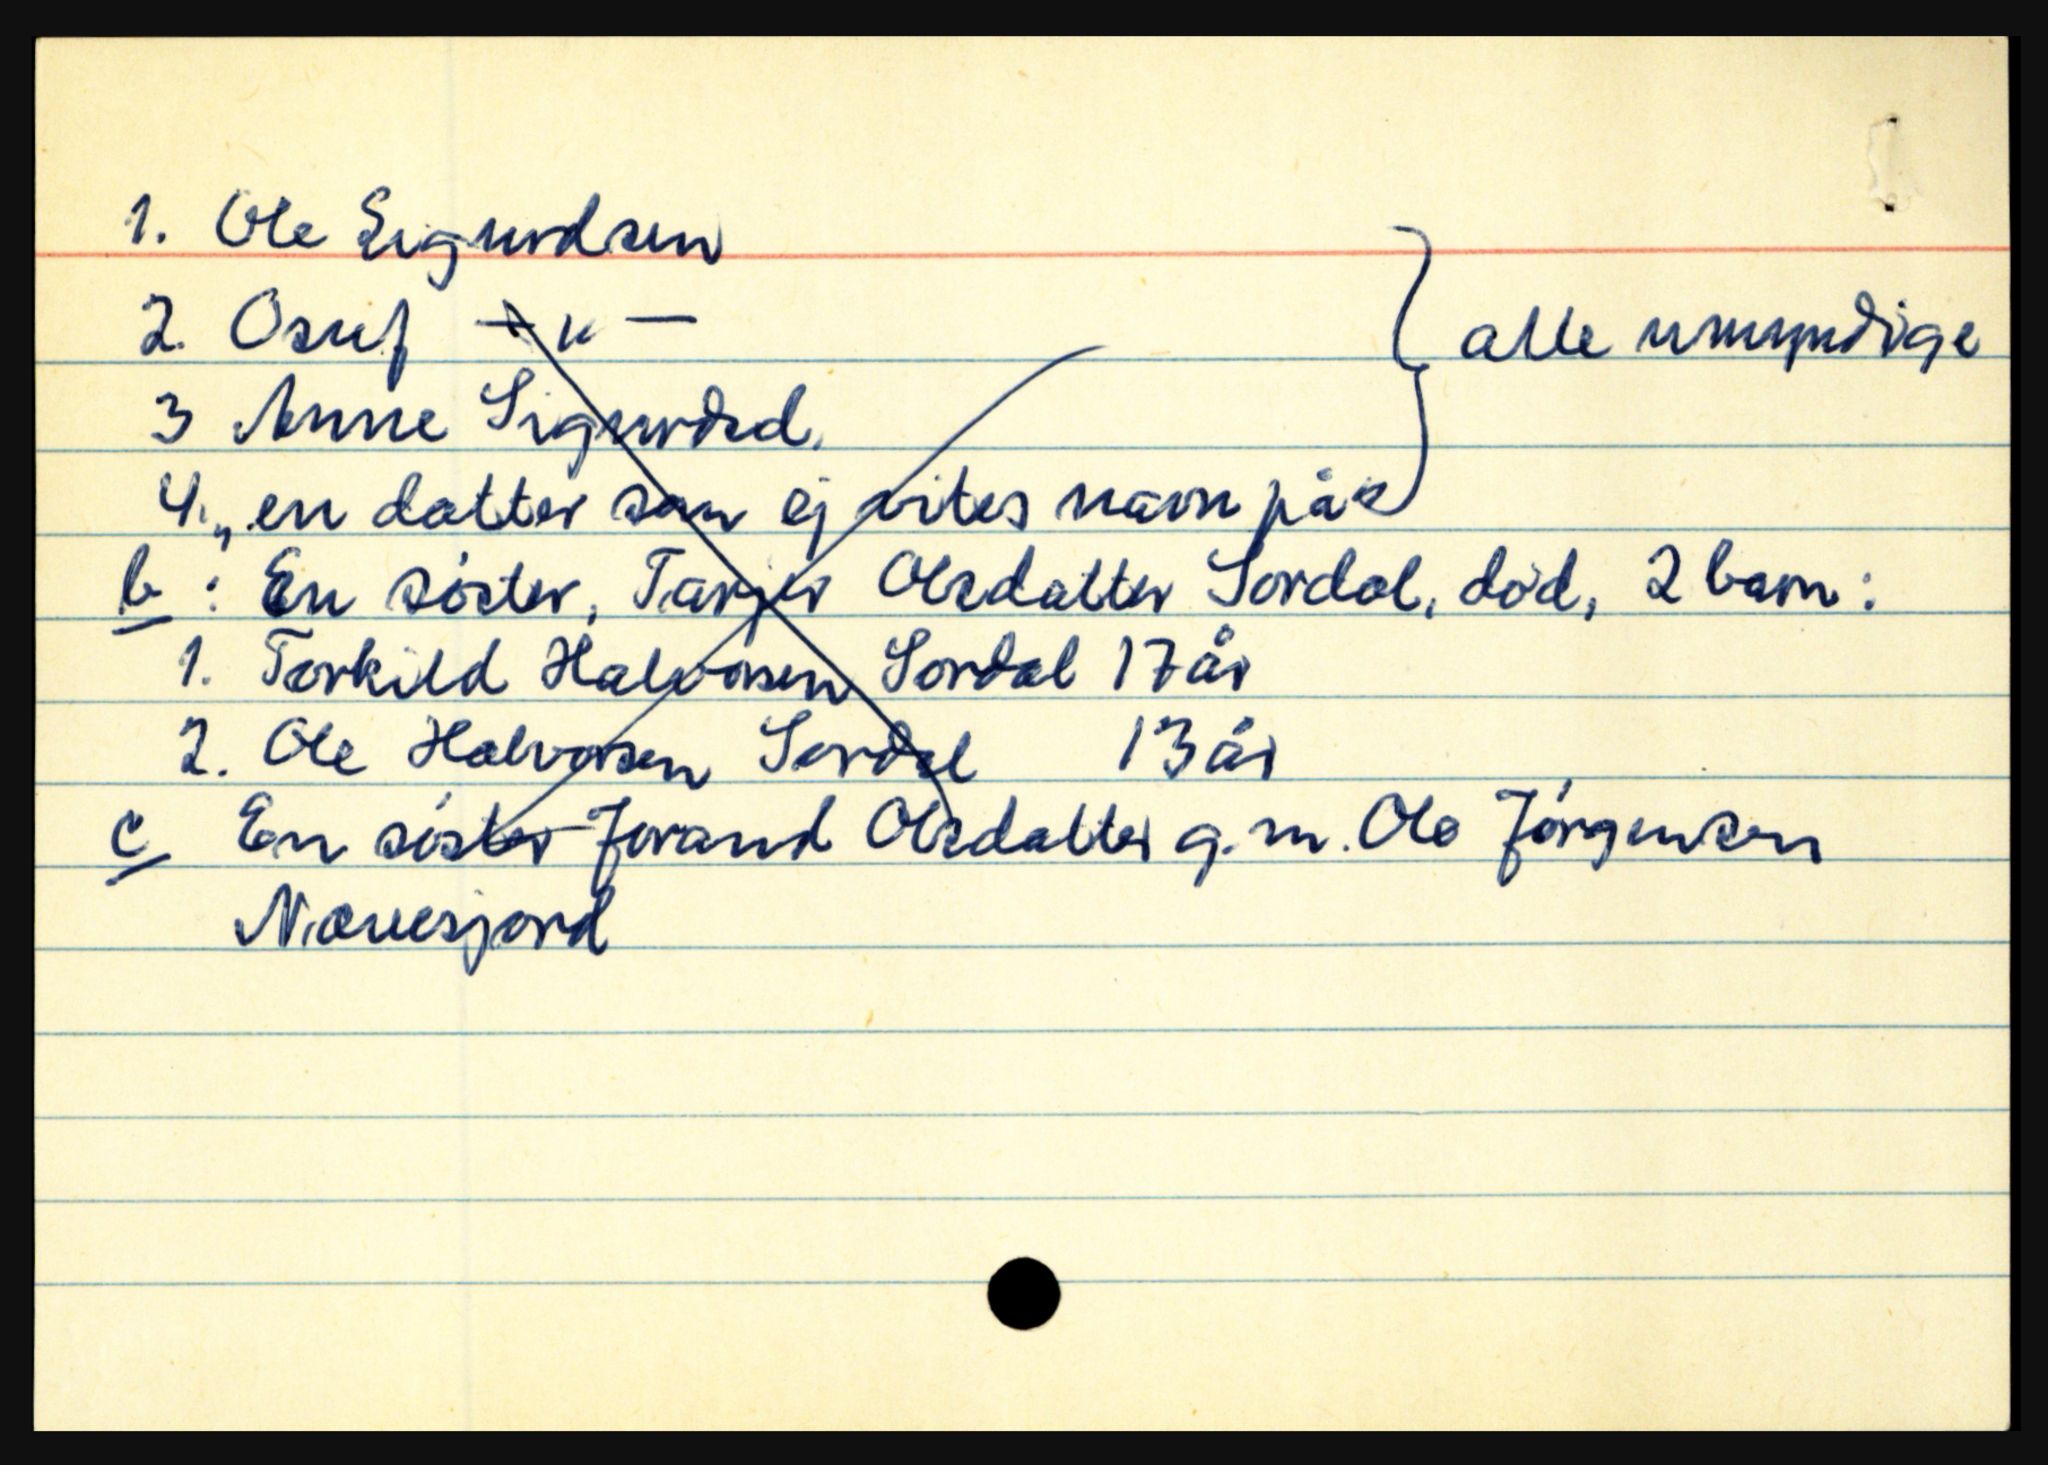 1. Ole Sigurdsen
2. Osuf — " —
3 Anne Sigurdsd.
4. „ en datter som ej vites navn på "
alle umyndige
b : En søster, Tarjer Olsdatter Sordal, død, 2 barn:
1. Torkild Halvorsen Sordal 17 år
2. Ole Halvorsen Sordal 13 år
c En søster Jorand Olsdatter g. m. Ole Jörgensen
Nævesjord